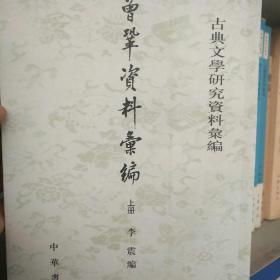 古典文學研究資料彙編
曾鞏資料彙編
上册
李震編
中華書